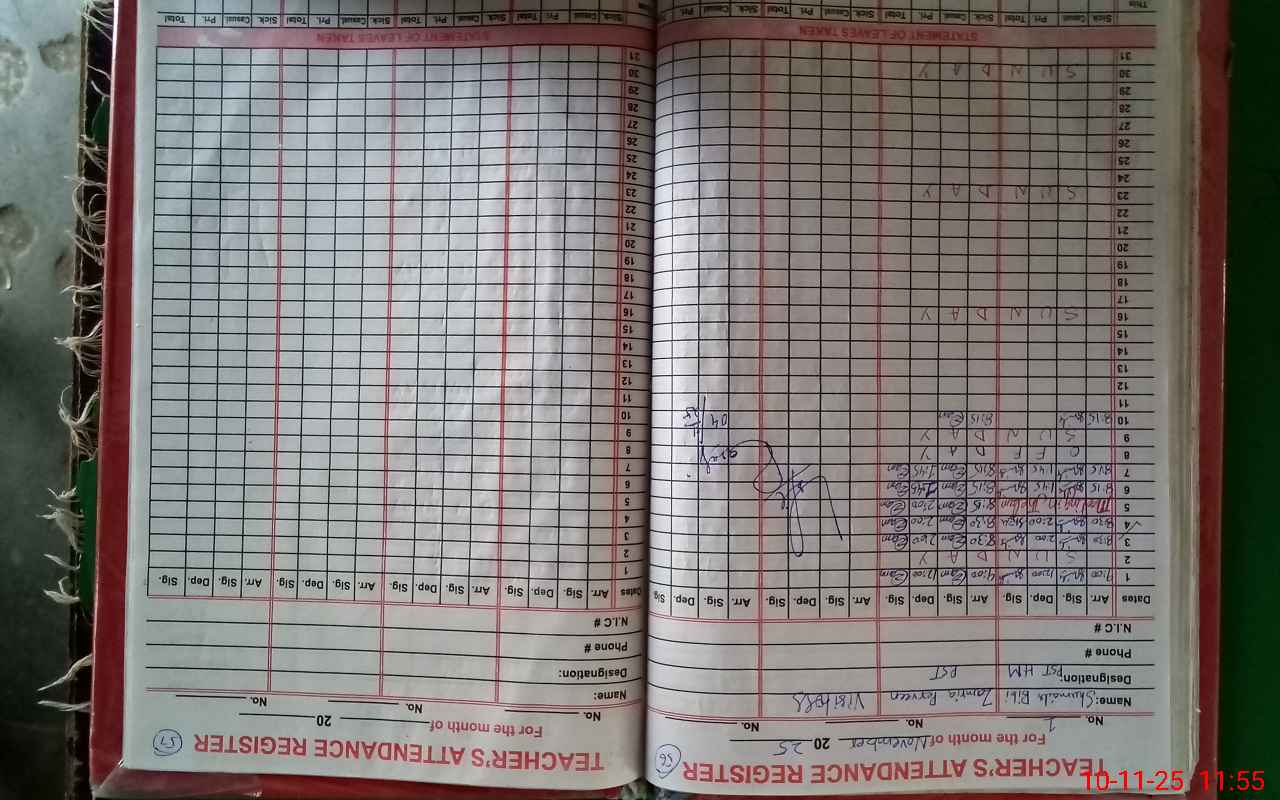 TEACHER'S ATTENDANCE REGISTER
56
For the month of November 2025
No. 1 No. No.
Name: Shumaila Bibi Zamria Parveen Visitors
Designation: PST HM PST
Phone #
N.I.C #
Dates Arr. Sig. Dep. Sig. Arr. Sig. Dep. Sig. Arr. Sig. Dep. Sig. Arr. Sig. Dep. Sig.
1 9:00 12:00 9:00 12:00
2 S U N D A Y
3 8:30 2:00 8:30 2:00
4 8:30 2:00 8:30 2:00
5 Meeting in 8:15 2:00
6 8:15 1:45 8:15 1:45
7 8:15 1:45 8:15 1:45
8 O F F D A Y
9 S U N D A Y
10 8:15 8:15
11
12
13
14
15
16 S U N D A Y
17
18
19
20
21
22
23 S U N D A Y
24
25
26
27
28
29
30 S U N D A Y
31
STATEMENT OF LEAVES TAKEN
Sick Casual Pri. Total Sick Casual Pri. Total Sick Casual Pri. Total Sick Casual Pri. Total
This
TEACHER'S ATTENDANCE REGISTER
57
For the month of 20
No. No. No.
Name:
Designation:
Phone #
N.I.C #
Dates Arr. Sig. Dep. Sig. Arr. Sig. Dep. Sig. Arr. Sig. Dep. Sig. Arr. Sig. Dep. Sig.
1
2
3
4
5
6
7
8
9
10
11
12
13
14
15
16
17
18
19
20
21
22
23
24
25
26
27
28
29
30
31
STATEMENT OF LEAVES TAKEN
Sick Casual Pri. Total Sick Casual Pri. Total Sick Casual Pri. Total Sick Casual Pri. Total
10-11-25 11:55